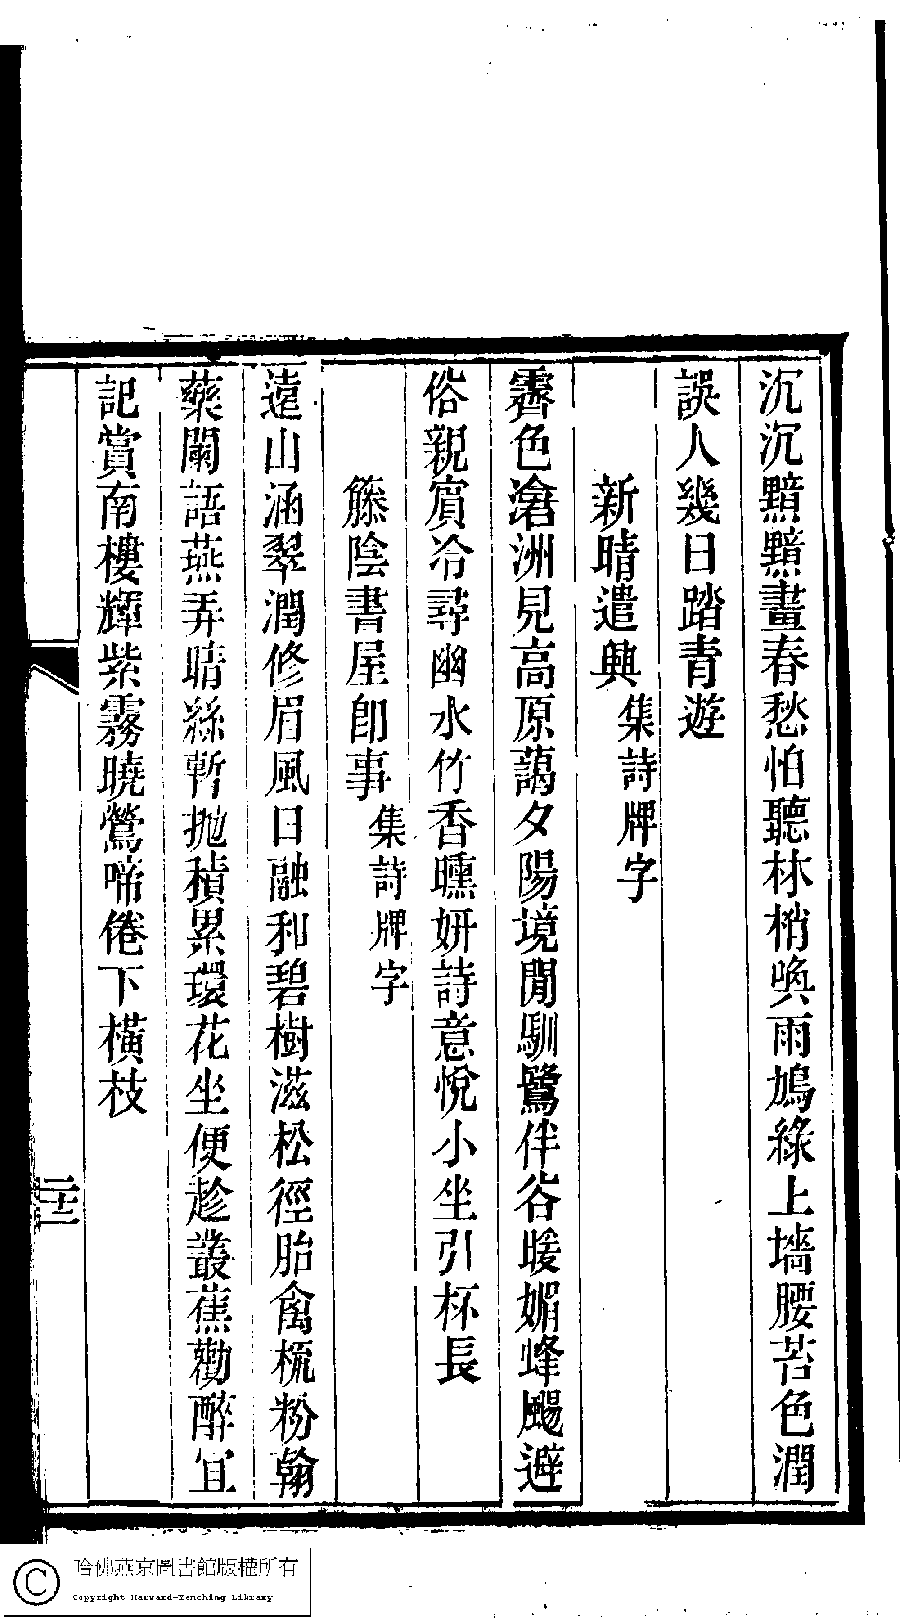 沉沉黯黯晝春愁怕聽林梢喚雨鳩綠上墻腰苔色潤
誤人幾日踏青遊
新晴遣興集詩牌字
霽色滄洲見高原藹夕陽境閒馴鷺伴谷暖媚蜂颺避
俗親賓冷尋幽水竹香曛妍詩意悅小坐引杯長
籐陰書屋卽事集詩牌字
遠山涵翠潤修眉風日融和碧樹滋松徑胎禽梳粉翰
藥闌語燕弄晴絲暫抛積累環花坐便趁叢蕉勸醉宜
記賞南樓輝紫霧曉鶯啼倦下橫枝
二十二
哈佛燕京圖書館版權所有
Copyright Harvard-Yenching Library